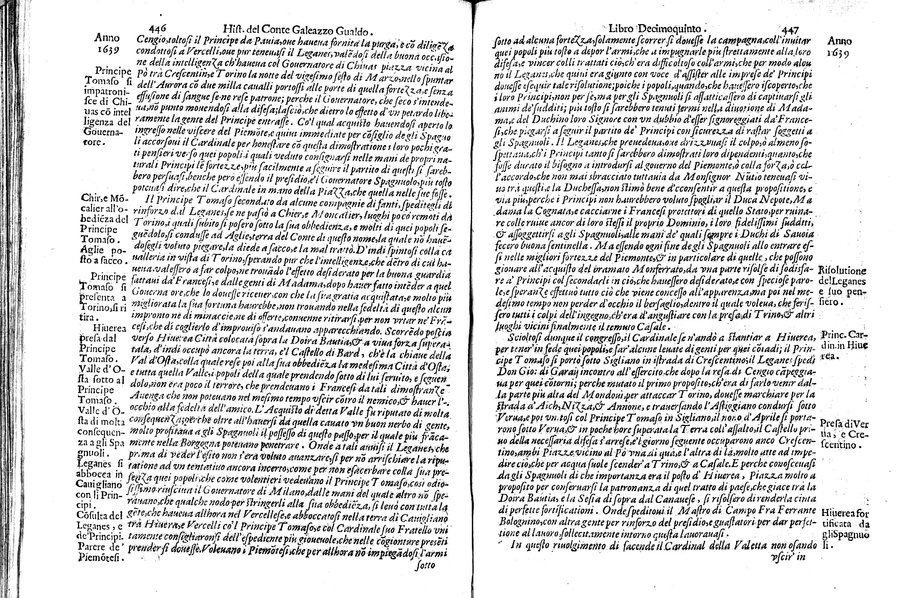 446 Hist. del Conte Galeazzo Gualdo.
Anno
1639
Cengio, toltosi il Principe da Pauia, oue haueua fornita la purga, e cõ diligẽza
condottosi à Vercelli, oue pur teneuasi il Leganes, valẽdosi della buona occasio-
ne della intelligẽza ch'haueua col Gouernatore di Chiuas piazza vicina al
Pò trà Crescentin, e Torino la notte del vigesimo sesto di Marzo, nello spuntar
dell'Aurora cò due mila caualli portossi alle porte di quella fortezza, e senza
effusione di sangue se ne rese patrone; perche il Gouernatore, che seco s'intende-
ua, nò punto mouendosi alla difesa, lasciò, che dietro lo effetto d'vn petardo libe-
ramente la gente del Principe entrasse. Co'l qual acquisto hauendosi aperto lo
ingresso nelle viscere del Piemõte, e quiui immediate per cõsiglio de gli Spagnuo
li accorsoui il Cardinale per honestare cò questa dimostratione i loro pochi gra-
ti pensieri verso quei popoli, i quali veduto consignarsi nelle mani de propri na-
turali Principi le fortezze, più facilmente a seguir il partito di questi si sareb-
bero persuasi, benche però essendo il presidio, e il Gouernatore Spagnuolo, più tosto
poteuasi dire, che il Cardinale in mano della Piazza, che quella nelle sue fosse.
Principe
Tomaso si
impatroni-
sce di Chi-
uas cõ intel
ligenza del
Gouerna-
tore.
Il Principe Tomaso secondato da alcune compagnie di fanti, speditegli di
rinforzo dal Leganes, se ne passò a Chier, e Moncalier, luoghi poco remoti da
Torino, i quali subito si posero sotto la sua obbedienza, e molti di quei popoli se-
guẽdolo, si condusse ad Aglie, terra del Conte di questo nome, la quale nò hauẽ-
dosegli voluto piegare, la diede a sacco, e la mal trattò. D'indi spinosi colla ca
ualleria in vista di Torino, sperando pur che l'intelligenze, che dẽtro di cui ha-
ueua valessero a far colpo, ne trouãdo l'effetto desiderato per la buona guardia
fattaui da' Francesi, e dalle genti di Madama, dopo hauer fatto intẽder a quel
Gouernatore, che lo douesse riceuer con che la sua gratia acquistata, e molto più
migliorata la sua fortuna haurebbe, non trouando nella fedeltà di questo alcun
impronto nè di minaccie, ne di offerte, conuenne ritirarsi, per non vrtar ne' Frã-
cesi, che di coglierlo d'improuiso s'andauano apparecchiando. Scorredò poscia
verso Hiuerea Città colocata sopra la Doira Bautia, & a viua forza supera-
tala, d'indi occupò ancora la terra, e'l Castello di Bard, ch'è la chiaue della
Val d'Osta, colla quale rese poi alla sua obbediẽza la medesima Città d'Osta,
e tutta quella Valle, i popoli della quale prendendo sotto di lui seruito, e seguen-
dolo, non era poco il terrore, che prendeuano i Francesi da tali dimostranze.
Auenga che non poteuano nel medesimo tempo vscir còtro il nemico, & hauer l'
occhio alla fedeltà dell'amico. L'Acquisto di detta Valle fu riputato di molta
consequenza, perche oltre all'hauersi da quella cauato vn buon neruo di gente,
molto profittaua a gli Spagnuoli il possesso di questo passo, per il quale più frãca-
mente nella Borgogna poteuano penetrare. Onde a tali auuisi il Leganes, che
prima di veder l'esito non s'era voluto auuanzare, si per nò arrischiare la ripu-
tatione ad vn tentatiuo ancora incerto, come per non esacerbare colla sua pre-
senza quei popoli, che come volentieri vedeuano il Principe Tomaso, così odio-
sissimo riusciua il Gouernatore di Milano, dalle mani del quale altro nò spe-
rauano, che qualche nodo per stringerli alla sua obbediẽza, si leuò con tutta la
gẽte, che haueua allhora nel Vercellese, e abboccatosi nella terra di Cauigliano
trà Hiuerea, e Vercelli co'l Principe Tomaso, e co'l Cardinale suo Fratello vni
tamente consigliaronsi dell'espediente più gioueuole, che nelle cogionture presẽti
prender si douesse. Voleuano i Piemõtesi, che per allhora nò impiegãdosi l'armi
sotto
Chier, e Mõ-
calier all'o-
bediẽza del
Principe
Tomaso.
Aglie po-
sta a sacco
Principe
Tomaso si
presenta a
Torino, si ri
tira.
Hiuerea
presa dal
Principe
Tomaso.
Valle d'O-
sta sotto al
Principe
Tomaso.
Valle d'O-
sta di molta
consequen-
za a gli Spa
gnuoli.
Leganes si
abbocca in
Cauigliano
con li Prin-
cipi.
Cõsulta del
Leganes, e
de'Principi.
Parere de'
Piemõtesi.
Libro Decimoquinto. 447
Anno
1639
sotto ad alcuna fortezza, solamente scorrer si douesse la campagna, coll'inuitar
quei popoli più tosto a depor l'armi, che a impugnarle più strettamente alla loro
difesa, e vincer colli trattati ciò, ch'era difficoltoso coll'armi, che per modo alcu
no il Leganes, che quiui era giunto con voce d'assister alle imprese de' Principi
douesse eseguir tale risolutione; poiche i popoli, quando, che hauessero iscoperto, che
i loro Principi, non per se, ma per gli Spagnuoli si affaticassero di captiuarsi gli
animi de' sudditi; più tosto si sarebbono tenuti fermi nella diuotione di Mada-
ma, e del Duchino loro Signore con vn dubbio d'esser signoreggiati da' France-
si, che piegarsi a seguir il partito de' Principi con sicurezza di restar soggetti a
gli Spagnuoli. Il Leganes, che preuedeua, oue drizzauasi il colpo, ò almeno so-
spettaua, ch'i Principi tanto si sarebbero dimostrati loro dipendenti, quanto, che
fosse durato il bisogno a introdursi al gouerno del Piemonte, ò colla forza, ò col
l'accordo, che non mai sbracciato tuttauia da Monsignor Nũtio teneuasi vi-
uo trà questi, e la Duchessa, non stimò bene d'consentir a questa propositione, e
via più, perche i Principi non haurebbero voluto spogliar il Duca Nepote, Ma
dama la Cognata, e cacciarne i Francesi protettori di quello Stato, per ruinar
re colle ruine ancora de loro stessi il proprio Dominio, i loro fidelissimi sudditi,
& assoggettirsi a gli Spagnuoli, alle mani de' quali sempre i Duchi di Sauoia
fecero buona sentinella. Ma essendo ogni fine de gli Spagnuoli allo entrare es-
si nelle migliori fortezze del Piemonte, & in particolare di quelle, che possono
giouare all'acquisto del bramato Monferrato, da vna parte risese di sodisfa-
re a' Principi col concederli in ciò, che hauessero desiderato, e con speciose paro-
le, e speranze effettuò tutto ciò che viene conceduto all'apparenza, ma poi nel me-
desimo tempo non perder d'occhio il berfaglio, dentro il quale voleua, che ferif-
sero tutti i colpi dell'ingegno, ch'era d'angustiar con la presa, di Trino, & altri
luoghi vicini finalmente il temuto Casale.
Risolutione
del Leganes
e suo pen-
siero.
Scioltosi dunque il congresso, il Cardinale se n'andò a stantiar a Hiuerea,
per tener in fede quei popoli, e far'alcune leuate di genti per quei còtadi; il Prin-
cipe Tomaso si portò sotto Sigliano in istrada di Crescentino, il Leganes spedì
Don Gio: di Garaij incontro all'esercito, che dopo la resa di Cengio cãpeggia-
ua per quei còtorni; perche mutato il primo proposito, ch'era di farlo venir dal-
la parte più alta del Mondouì, per attaccar Torino, douesse marchiare per la
strada d'Aich, Nizza, & Annone, e trauersando l'Astiggiano condursi sotto
Verua; poi vn'altosi col Principe Tomaso in Stefano, il no. o d'Aprile si porta-
rono sotto Verua, & in poche hore superata la Terra coll'assalto, il Castello pri-
uo della necessaria difesa s'arrese, e'l giorno seguente occuparono anco Crescen-
tino, ambi Piazze vicine al Pò vna di quà, e l'altra di là, molto atte ad impe-
dire ciò, che per acqua suole scender' a Trino, & a Casale. E perche conosceuasi
da gli Spagnuoli di che importanza era il posto d'Hiuerea, Piazza molto a
proposito per conseruarsi la patronanza di quel tratto di paese, che giace trà la
Doira Bautia, e la Sesia di sopra dal Canauese, si risolsero di renderla cinta
di perfette fortificationi. Onde speditoui il Mastro di Campo Fra Ferrante
Bolognino, con altra gente per rinforzo del presidio, e guastatori per dar perfet-
tione al lauoro sollecitamente intorno questa lauorauasi.
In questo riuolgimento di facende il Cardinal della Valetta non osando
vscir in
Princ. Car-
din. in Hiue
rea.
Presa di Ver
rua, e Cre-
scentino.
Hiuerea for
tificata da
gli Spagnuo
li.